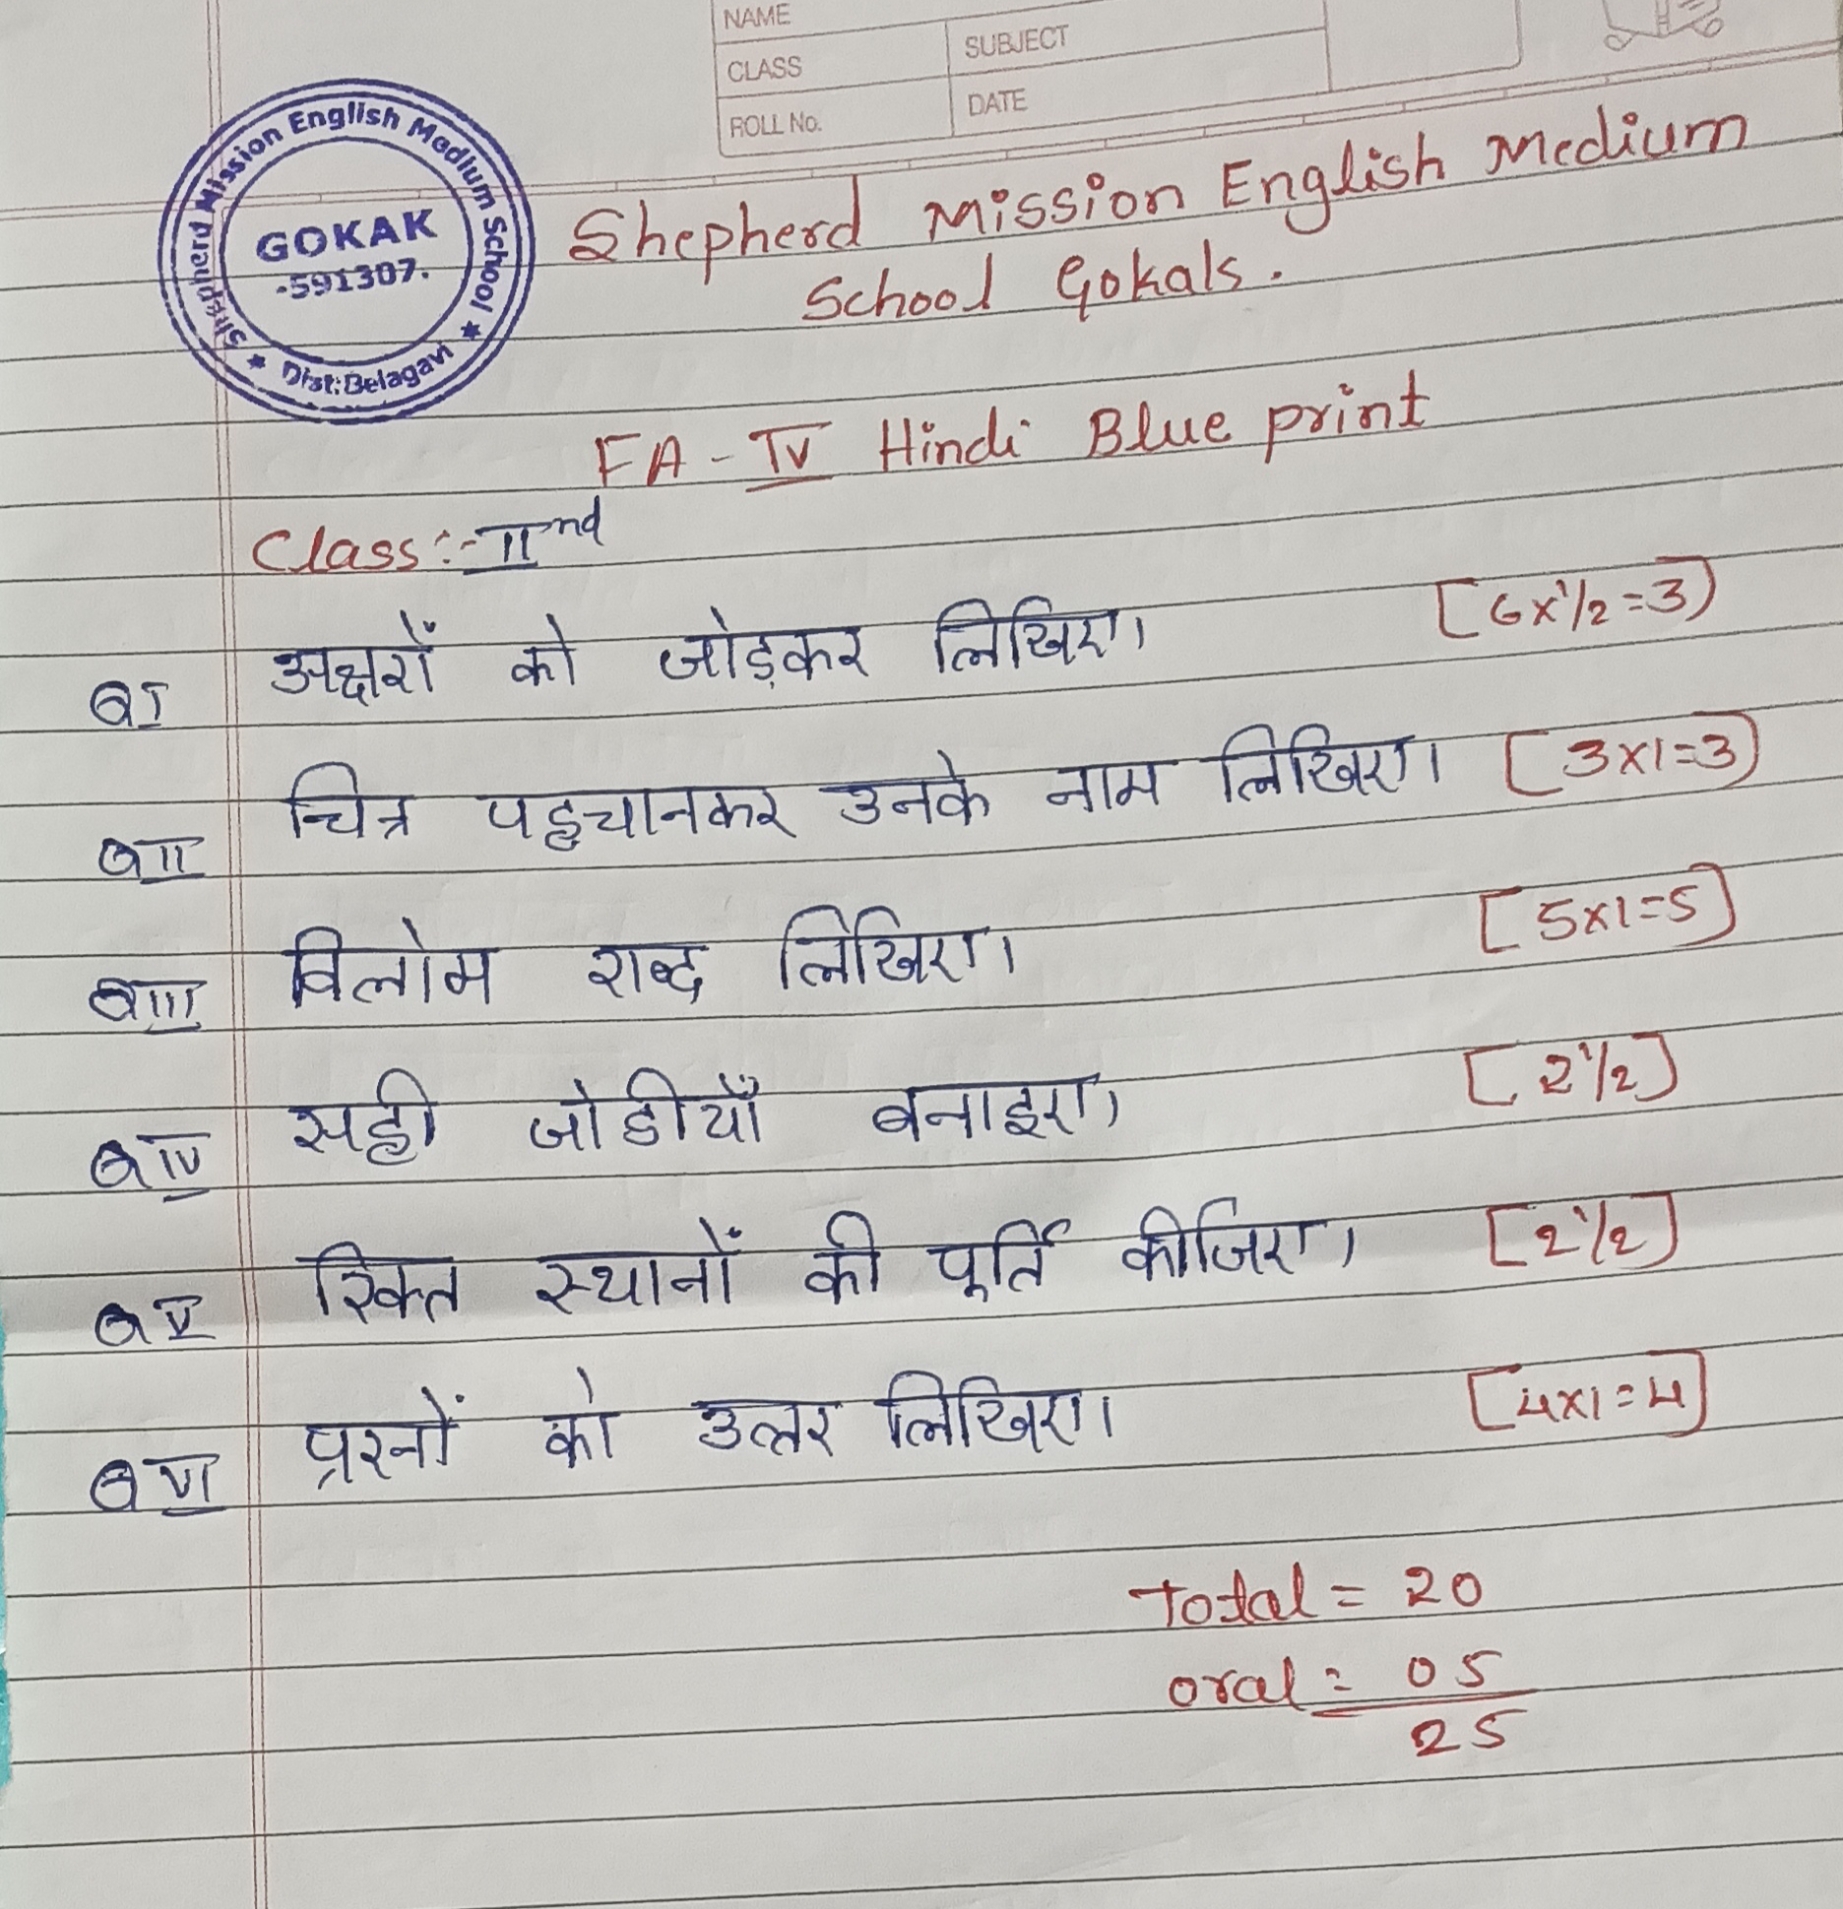 NAME
CLASS
SUBJECT
ROLL No.
DATE
Shepherd Mission English Medium School
GOKAK
-591307.
Dist: Belagavi
Shepherd Mission English Medium
School Gokak.
FA - IV Hindi Blue print
Class :- IInd
Q I अक्षरों को जोड़कर लिखिए। [6x1/2=3]
Q II चित्र पहचानकर उनके नाम लिखिए। [3x1=3]
Q III विलोम शब्द लिखिए। [5x1=5]
Q IV सही जोडीयाँ बनाइए। [2 1/2]
Q V रिक्त स्थानों की पूर्ति कीजिए। [2 1/2]
Q VI प्रश्नों को उत्तर लिखिए। [4x1=4]
Total = 20
oral = 05
25